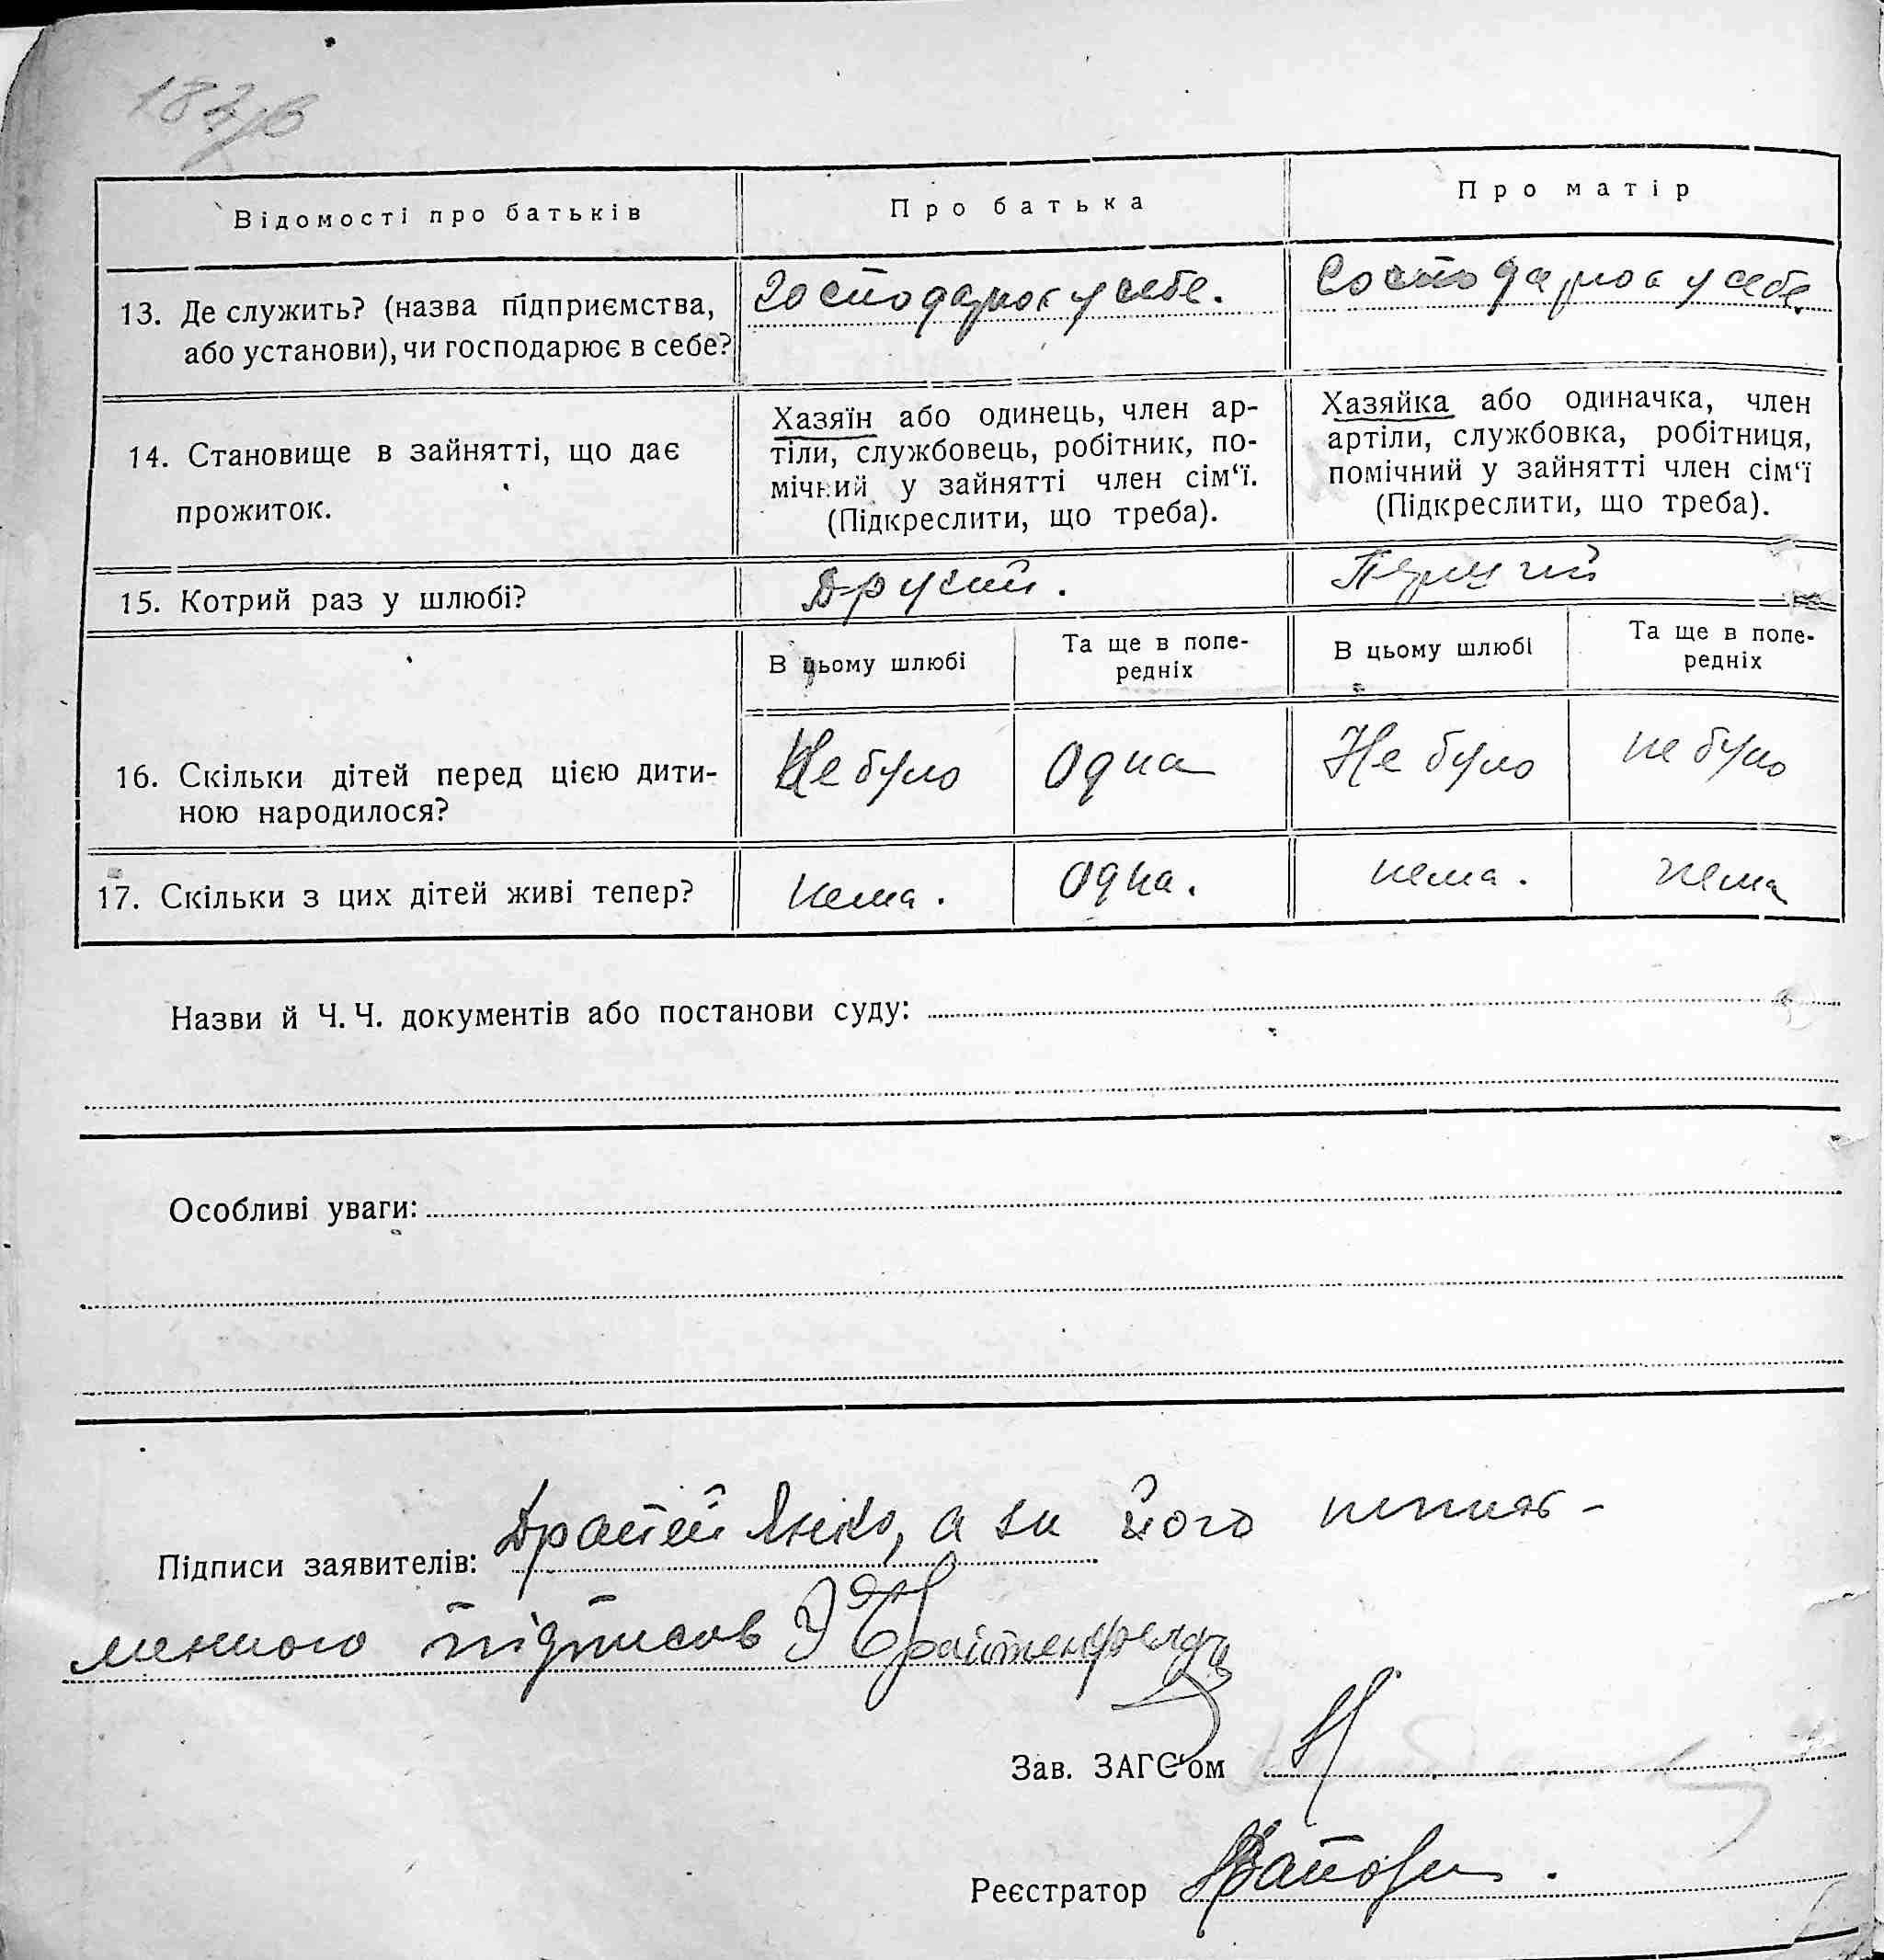 Відомості про батьків
Про батька
Про матір
13. Де служить? (назва підприємства,
або установи), чи господарює в себе?
Господарює у себе.
Господарює у себе
14. Становище в зайнятті, що дає
прожиток.
Хазяїн або одинець, член ар-
тіли, службовець, робітник, по-
мічний у зайнятті член сім‘ї.
(Підкреслити, що треба).
Хазяйка або одиначка, член
артіли, службовка, робітниця,
помічний у зайнятті член сім‘ї
(Підкреслити, що треба).
15. Котрий раз у шлюбі?
Другий.
Перший
В цьому шлюбі
Та ще в попе-
редніх
В цьому шлюбі
Та ще в попе-
редніх
16. Скільки дітей перед цією дити-
ною народилося?
Не було
Одна
Не було
не було
17. Скільки з цих дітей живі тепер?
нема.
Одна.
нема.
нема
Назви й Ч. Ч. документів або постанови суду:
Особливі уваги:
Підписи заявителів: а за його непись-
менного підписав
Зав. ЗАГС‘ом
Реєстратор